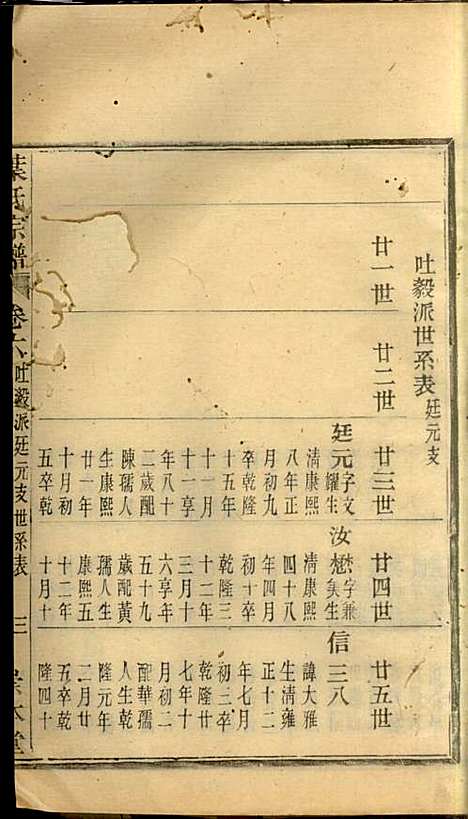 吐毅派世系表 廷元支
廿一世
廿二世
廿三世
廷元 字文耀生
清康熙
八年正
月初九
卒乾隆
十五年
十一月
十一享
年八十
二歲配
陳孺人
生康熙
廿一年
十月初
五卒乾
廿四世
汝懋 字兼矣生
清康熙
四十八
年四月
初十卒
乾隆三
十二年
三月十
六享年
五十九
歲配黃
孺人生
康熙五
十二年
十月十
廿五世
信三八
諱大雅
生清雍
正十二
年七月
初三卒
乾隆廿
七年十
月初二
配華孺
人生乾
隆元年
二月廿
五卒乾
隆四十
葉氏宗譜 卷六 吐毅派廷元支世系表 三 崇本堂